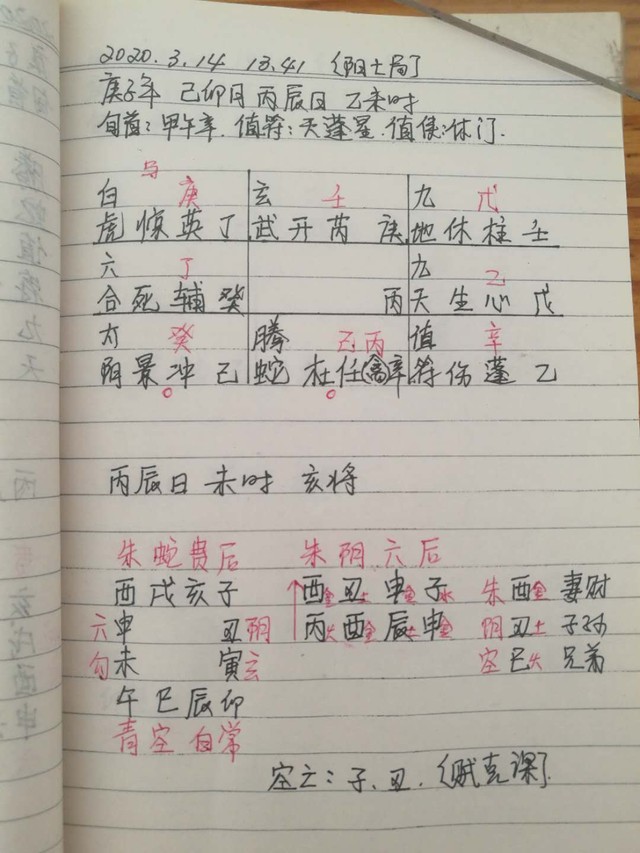 2020.3.14 13.41 〈阳七局〉
庚子年 己卯月 丙辰日 乙未时
旬首:甲午辛.值符:天蓬星.值使:休门.
马
白 庚 玄 壬 九 戊
虎 惊 英 丁 武 开 芮 庚 地 休 柱 壬
六 丁 九 乙
合 死 辅 癸 丙 天 生 心 戊
太 癸 腾 己 丙 值 辛
阴 景 冲 己 蛇 杜 任 禽 辛 符 伤 蓬 乙
丙辰日 未时 亥将
朱 蛇 贵 后 朱 阴 六 后
酉 戌 亥 子 酉金 丑土 申金 子水 朱 酉金 妻财
六 申 丑 阴 丙火 酉金 辰土 申金 阴 丑土 子孙
勾 未 寅 玄 空 巳火 兄弟
午 巳 辰 卯
青 空 白 常
空亡:子、丑.〈贼克课〉